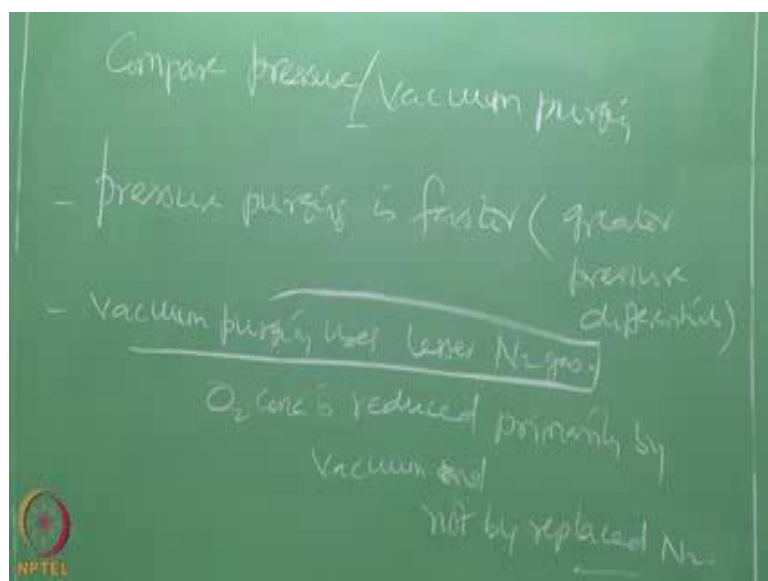 Compare pressure/Vacuum purging
- pressure purging is faster (greater
pressure
differential)
- Vacuum purging uses lesser N₂ gas.
O₂ conc is reduced primarily by
Vacuum and
not by replaced N₂.
NPTEL